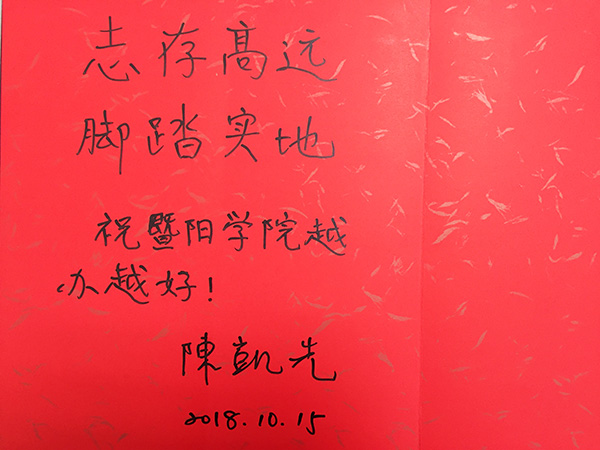 志存高远
脚踏实地
祝暨阳学院越
办越好!
陳凱先
2018.10.15